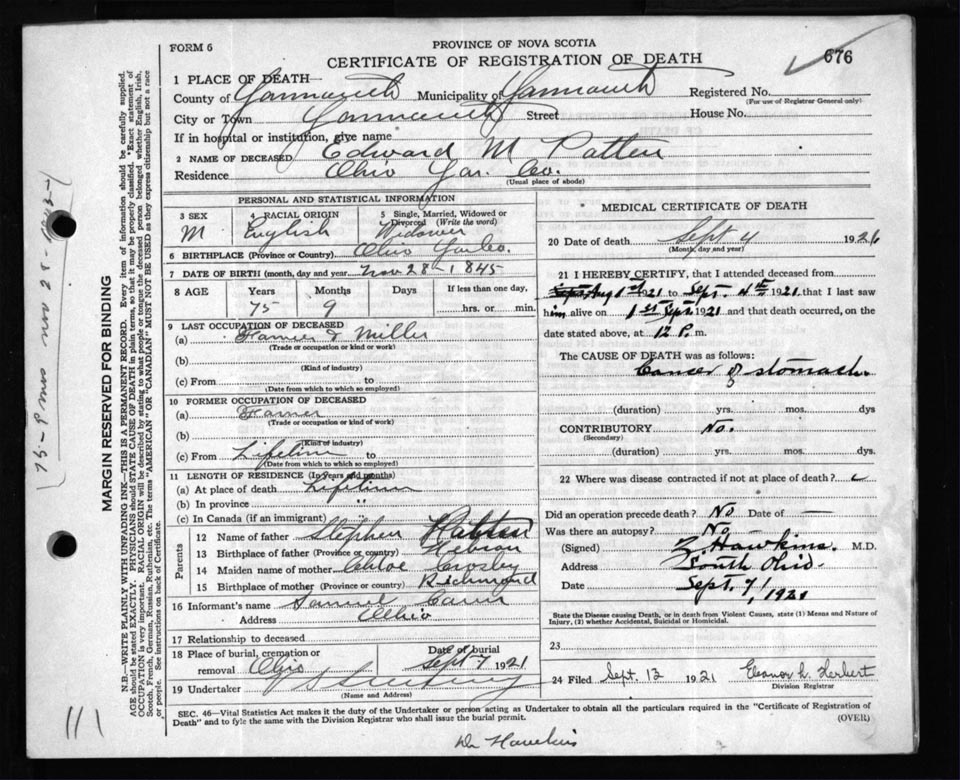 PROVINCE OF NOVA SCOTIA
FORM 6
CERTIFICATE OF REGISTRATION OF DEATH
676
1 PLACE OF DEATH
County of Yarmouth Municipality of Yarmouth Registered No.
(For use of Registrar General only)
City or Town Yarmouth Street House No.
If in hospital or institution, give name
2 NAME OF DECEASED Edward M Patten
Residence Ohio Yar. Co.
(Usual place of abode)
PERSONAL AND STATISTICAL INFORMATION
3 SEX 4 RACIAL ORIGIN 5 Single, Married, Widowed or Divorced (Write the word)
M English Widower
6 BIRTHPLACE (Province or Country) Ohio Yar Co.
7 DATE OF BIRTH (month, day and year) Nov 28th 1845
8 AGE Years Months Days If less than one day,
75 9 hrs. or min.
9 LAST OCCUPATION OF DECEASED
(a) Farmer & Miller
(Trade or occupation or kind or work)
(b)
(Kind of industry)
(c) From to
(Date from which to which so employed)
10 FORMER OCCUPATION OF DECEASED
(a) Farmer
(Trade or occupation or kind of work)
(b)
(Kind of industry)
(c) From Lifetime to
(Date from which to which so employed)
11 LENGTH OF RESIDENCE (In years and months)
(a) At place of death Lifetime
(b) In province "
(c) In Canada (if an immigrant) "
Parents
12 Name of father Stephen Patten
13 Birthplace of father (Province or country) Hebron
14 Maiden name of mother Chloe Crosby
15 Birthplace of mother (Province or country) Richmond
16 Informant's name Samuel
Address Ohio
17 Relationship to deceased
18 Place of burial, cremation or removal Ohio Date of burial Sept 7 1921
19 Undertaker
(Name and Address)
MEDICAL CERTIFICATE OF DEATH
20 Date of death Sept 4 1926
(Month, day and year)
21 I HEREBY CERTIFY, that I attended deceased from
Aug 1st 1921 to Sept. 4th 1921 that I last saw
him alive on 1st Sept 1921 and that death occurred, on the
date stated above, at 12 P.m.
The CAUSE OF DEATH was as follows:
Cancer of stomach
(duration) yrs. mos. dys
CONTRIBUTORY No.
(Secondary)
(duration) yrs. mos. dys.
22 Where was disease contracted if not at place of death?
Did an operation precede death? No Date of —
Was there an autopsy? No
(Signed) Z. Hawkins. M.D.
Address South Ohio.
Date Sept. 7, 1921
State the Disease causing Death, or in death from Violent Causes, state (1) Means and Nature of
Injury, (2) whether Accidental, Suicidal or Homicidal.
23
24 Filed Sept. 12 1921 Eleanor L. Herbert
Division Registrar
SEC. 46—Vital Statistics Act makes it the duty of the Undertaker or person acting as Undertaker to obtain all the particulars required in the "Certificate of Registration of
Death" and to fyle the same with the Division Registrar who shall issue the burial permit.
(OVER)
Dr Hawkins
MARGIN RESERVED FOR BINDING
N.B.—WRITE PLAINLY WITH UNFADING INK—THIS IS A PERMANENT RECORD. Every item of information should be carefully supplied.
AGE should be stated EXACTLY. PHYSICIANS should STATE CAUSE OF DEATH in plain terms, so that it may be properly classified. "Exact statement of
OCCUPATION is very important. RACIAL ORIGIN will be described by stating to what people or tongue the deceased person belonged whether English, Irish,
Scotch, French, German, Russian, Ruthenian, etc. The terms "AMERICAN" OR "CANADIAN" MUST NOT BE USED as they express citizenship but not a race
or people. See instructions on back of Certificate.
111